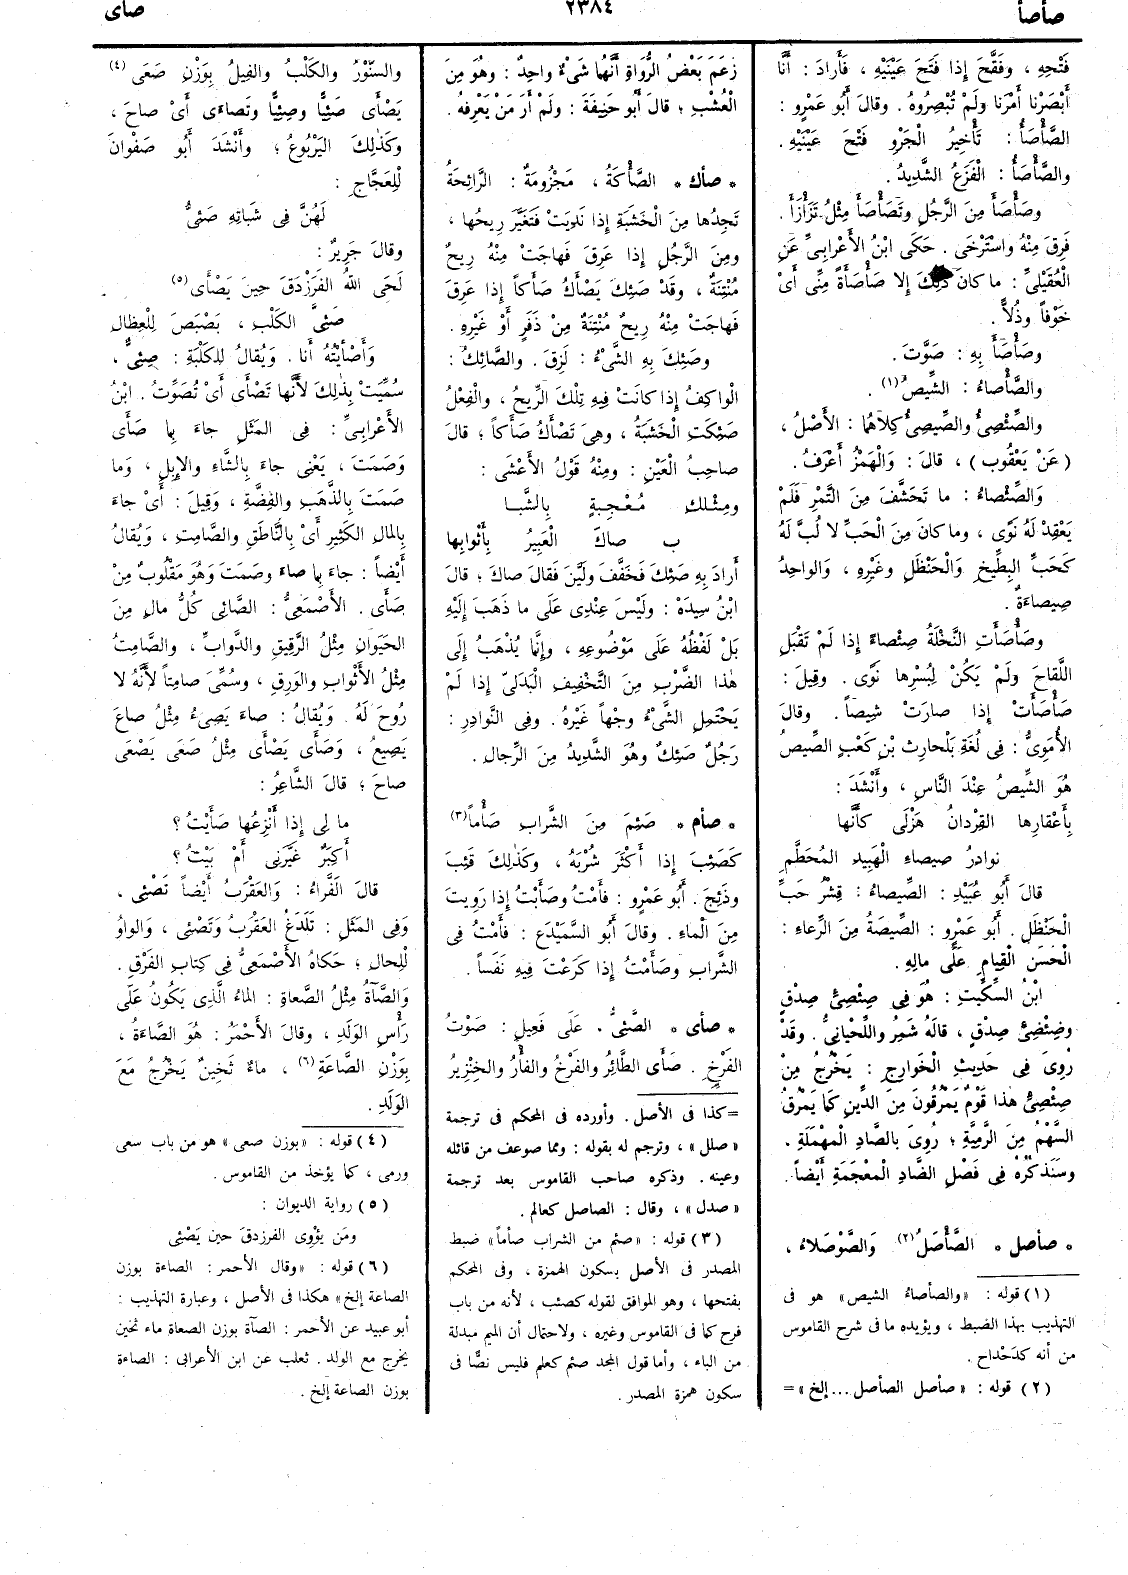 صأصأ
٢٣٨٤
صأى
فَتْحِهِ ، وفَقَّحَ إِذا فَتَحَ عَيْنَيْهِ ، فَأَرادَ : أَنَّا
أَبْصَرْنا أَمْرَنا ولَمْ تُبْصِرُوهُ . وقالَ أَبُو عَمْرٍو :
الصَّأْصَأُ : تَأْخِيرُ الْجَرْوِ فَتْحَ عَيْنَيْهِ .
والصَّأْصَأُ : الْفَزَعُ الشَّدِيدُ .
وصَأْصَأَ مِنَ الرَّجُلِ وتَصَأْصَأَ مِثْلُ تَزَأْزَأَ .
فَرِقَ مِنْهُ واسْتَرْخَى . حَكَى ابْنُ الأَعْرابِىِّ عَنِ
الْعُقَيْلِىِّ : ما كانَ ذٰلِكَ إِلا صَأْصَأَةً مِنِّى أَىْ
خَوْفاً وذُلاًّ .
وصَأْصَأَ بِهِ : صَوَّتَ .
والصَّأْصاءُ : الشِّيصُ(١) .
والصِّئْصِئُ والصِّيصِئُ كِلاهُما : الأَصْلُ ،
( عَنْ يَعْقُوب ) ، قالَ : وَالْهَمْزُ أَعْرَفُ .
وَالصِّئْصاءُ : ما تَحَشَّفَ مِنَ التَّمْرِ فَلَمْ
يَعْقِدْ لَهُ نَوًى ، وما كانَ مِنَ الْحَبِّ لا لُبَّ لَهُ
كَحَبِّ الْبِطِّيخِ وَالْحَنْظَلِ وغَيْرِهِ ، وَالْواحِدُ
صِيصاءَةٌ .
وصَأْصَأَتِ النَّخْلَةُ صِئْصاءً إِذا لَمْ تَقْبَلِ
اللَّقَاحَ ولَمْ يَكُنْ لِبُسْرِها نَوًى . وقِيلَ :
صَأْصَأَتْ إِذا صارَتْ شِيصاً . وقالَ
الأُمَوِىُّ : فِى لُغَةِ بَلْحارِثِ بْنِ كَعْبٍ الصِّيصُ
هُوَ الشِّيصُ عِنْدَ النَّاسِ ، وأَنْشَدَ :
بِأَعْقارِها القِرْدانُ هَزْلَى كَأَنَّها
نَوادِرُ صِيصاءِ الْهَبِيدِ الْمُحَطَّمِ
قالَ أَبُو عُبَيْدٍ : الصِّيصاءُ : قِشْرُ حَبِّ
الْحَنْظَلِ . أَبُو عَمْرٍو : الصِّيصَةُ مِنَ الرِّعاءِ :
الْحَسَنُ الْقِيامِ عَلَى مالِهِ .
ابْنُ السِّكِّيتِ : هُوَ فِى صِئْصِئِ صِدْقٍ
وضِئْضِئِ صِدْقٍ ، قالَهُ شَمِرٌ واللِّحْيانِىُّ . وقَدْ
رُوِىَ فِى حَدِيثِ الْخَوارِجِ : يَخْرُجُ مِنْ
صِئْصِئِ هٰذا قَوْمٌ يَمْرُقُونَ مِنَ الدِّينِ كَما يَمْرُقُ
السَّهْمُ مِنَ الرَّمِيَّةِ ؛ رُوِىَ بِالصَّادِ الْمُهْمَلَةِ .
وسَنَذْكُرُهُ فِى فَصْلِ الضَّادِ الْمُعْجَمَةِ أَيْضاً .
* صأصل * الصَّأْصَلُ(٢) وَالصَّوْصَلاءُ ،
(١) قوله : «والصأصاءُ الشيص» هو فى
التهذيب بهذا الضبط ، ويؤيده ما فى شرح القاموس
من أنه كدَحْداح .
(٢) قوله : «صأصل الصأصل ... إلخ» =
زَعَمَ بَعْضُ الرُّواةِ أَنَّهُما شَىْءٌ واحِدٌ : وهُوَ مِنَ
الْعُشْبِ ؛ قالَ أَبُو حَنِيفَةَ : ولَمْ أَرَ مَنْ يَعْرِفُهُ .
* صأك * الصَّأْكَةُ ، مَجْزُومَةٌ : الرَّائِحَةُ
تَجِدُها مِنَ الْخَشَبَةِ إِذا نَدِيَتْ فَتَغَيَّرَ رِيحُها ،
ومِنَ الرَّجُلِ إِذا عَرِقَ فَهاجَتْ مِنْهُ رِيحٌ
مُنْتِنَةٌ ، وقَدْ صَئِكَ يَصْأَكُ صَأَكاً إِذا عَرِقَ
فَهاجَتْ مِنْهُ رِيحٌ مُنْتِنَةٌ مِنْ ذَفَرٍ أَوْ غَيْرِهِ .
وصَئِكَ بِهِ الشَّىْءُ : لَزِقَ . والصَّائِكُ :
الْواكِفُ إِذا كانَتْ فِيهِ تِلْكَ الرِّيحُ ، والْفِعْلُ
صَئِكَتِ الْخَشَبَةُ ، وهِىَ تَصْأَكُ صَأَكاً ؛ قالَ
صاحِبُ الْعَيْنِ : ومِنْهُ قَوْلُ الأَعْشَى :
ومِثْـلكِ مُعْجِبةٍ بِالشَّبـا
بِ صاكَ الْعَبِيرُ بِأَثْوابِها
أَرادَ بِهِ صَئِكَ فَخَفَّفَ ولَيَّنَ فَقالَ صاكَ ؛ قالَ
ابْنُ سِيدَهْ : ولَيْسَ عِنْدِى عَلَى ما ذَهَبَ إِلَيْهِ
بَلْ لَفْظُهُ عَلَى مَوْضُوعِهِ ، وإِنَّما يُذْهَبُ إِلَى
هٰذا الضَّرْبِ مِنَ التَّخْفِيفِ الْبَدَلِىِّ إِذا لَمْ
يَحْتَمِلِ الشَّىْءُ وجْهاً غَيْرَهُ . وفِى النَّوادِرِ :
رَجُلٌ صَئِكٌ وهُوَ الشَّدِيدُ مِنَ الرِّجالِ .
* صأم * صَئِمَ مِنَ الشَّرابِ صَأْماً(٣)
كَصَئِبَ إِذا أَكْثَرَ شُرْبَهُ ، وكَذٰلِكَ قَئِبَ
وذَئِجَ . أَبُو عَمْرٍو : فأَمْتُ وصَأَبْتُ إِذا رَوِيتَ
مِنَ الْماءِ . وقالَ أَبُو السَّمَيْدَعِ : فأَمْتُ فِى
الشَّرابِ وصَأَمْتُ إِذا كَرَعْتَ فِيهِ نَفَساً .
* صأى * الصَّئِىُّ ، عَلَى فَعِيلٍ : صَوْتُ
الْفَرْخِ . صَأَى الطَّائِرُ والْفَرْخُ والْفَأْرُ والْخِنْزِيرُ
= كذا فى الأصل . وأورده فى المحكم فى ترجمة
«صلل» ، وترجم له بقوله : ومما ضوعف من فائه
وعينه . وذكره صاحب القاموس بعد ترجمة
«صدل» ، وقال : الصاصل كعالم .
(٣) قوله : «صئم من الشراب صأماً» ضبط
المصدر فى الأصل بسكون الهمزة ، وفى المحكم
بفتحها ، وهو الموافق لقوله كصئب ، لأنه من باب
فرح كما فى القاموس وغيره ، ولاحتمال أن الميم مبدلة
من الباء ، وأما قول المجد صئم كعلم فليس نصًّا فى
سكون همزة المصدر .
والسِّنَّوْرُ والْكَلْبُ والْفِيلُ بِوَزْنِ صَعَى(٤)
يَصْأَى صَئِيًّا وصِئِيًّا وتَصاءَى أَىْ صاحَ ،
وكَذٰلِكَ الْيَرْبُوعُ ؛ وأَنْشَدَ أَبُو صَفْوانَ
لِلْعَجَّاجِ :
لَهُنَّ فِى شَباتِهِ صَئِىُّ
وقالَ جَرِيرٌ :
لَحَى اللّٰهُ الْفَرَزْدَقَ حِينَ يَصْأَى(٥)
صَئِىَّ الْكَلْبِ ، بَصْبَصَ لِلْعِظالِ
وَأَصْأَيْتُهُ أَنا . وَيُقالُ لِلْكَلْبَةِ : صِئِىٌّ ،
سُمِّيَتْ بِذٰلِكَ لأَنَّها تَصْأَى أَىْ تُصَوِّتُ . ابْنُ
الأَعْرابِىِّ : فِى الْمَثَلِ جاءَ بِما صَأَى
وَصَمَتَ ، يَعْنِى جاءَ بِالشَّاءِ والإِبِلِ ، وَما
صَمَتَ بِالذَّهَبِ والفِضَّةِ ، وَقِيلَ : أَىْ جاءَ
بِالْمالِ الْكَثِيرِ أَىْ بِالنَّاطِقِ والصَّامِتِ ، وَيُقالُ
أَيْضاً : جاءَ بِما صاءَ وصَمَتَ وَهُوَ مَقْلُوبٌ مِنْ
صَأَى . الأَصْمَعِىُّ : الصَّائِى كُلُّ مالٍ مِنَ
الْحَيَوانِ مِثْلُ الرَّقِيقِ والدَّوابِّ ، والصَّامِتُ
مِثْلُ الأَثْوابِ والوَرِقِ ، وَسُمِّىَ صامِتاً لأَنَّهُ لا
رُوحَ لَهُ . وَيُقالُ : صاءَ يَصِىءُ مِثْلُ صاعَ
يَصِيعُ ، وَصَأَى يَصْأَى مِثْلُ صَعَى يَصْعَى
صاحَ ؛ قالَ الشَّاعِرُ :
ما لِى إِذا أَنْزِعُها صَأَيْتُ ؟
أَكِبَرٌ غَيَّرَنِى أَمْ بَيْتُ ؟
قالَ الْفَرَّاءُ : وَالعَقْرَبُ أَيْضاً تَصْئِى ،
وَفِى المَثَلِ : تَلْدَغُ العَقْرَبُ وَتَصْئِى ، والواوُ
لِلْحالِ ؛ حَكاهُ الأَصْمَعِىُّ فِى كِتابِ الفَرْقِ .
وَالصَّآةُ مِثْلُ الصَّعاةِ : الماءُ الَّذِى يَكُونُ عَلَى
رَأْسِ الوَلَدِ ، وقالَ الأَحْمَرُ : هُوَ الصَّاءَةُ ،
بِوَزْنِ الصَّاعَةِ(٦) ، ماءٌ ثَخِينٌ يَخْرُجُ مَعَ
الوَلَدِ .
(٤) قوله : «بوزن صعى» هو من باب سعى
ورمى ، كما يؤخذ من القاموس .
(٥) رواية الديوان :
ومَن يؤْوِى الفرزدقَ حين يَصْئِى
(٦) قوله : «وقال الأحمر : الصاءة بوزن
الصاعة إلخ» هكذا فى الأصل ، وعبارة التهذيب :
أبو عبيد عن الأحمر : الصآة بوزن الصعاة ماء ثخين
يخرج مع الولد . ثعلب عن ابن الأعرابى : الصاءة
بوزن الصاعة إلخ .